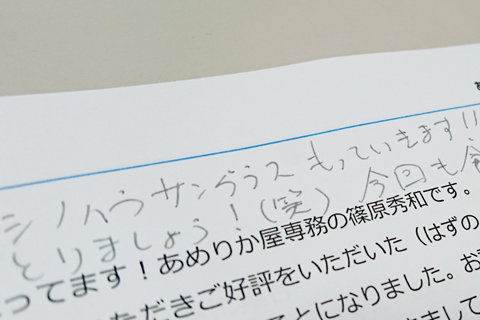 シノハラサングラスもっていきます!!
とりましょう！(笑) 今回も
ってます！あめりか屋専務の篠原秀和です。
ただきご好評をいただいた（はずの
ことになりました。お
まして